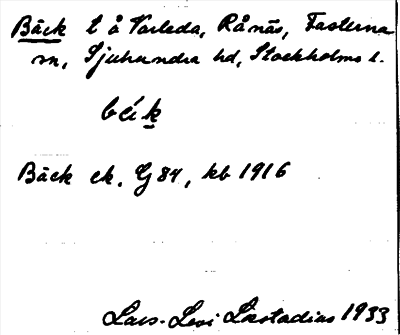 Bäck t å Varleda, Rånäs, Fasterna
sn, Sjuhundra hd, Stockholms l.
bék
Bäck ek. G 84, kb 1916
Lars-Levi Læstadius 1933